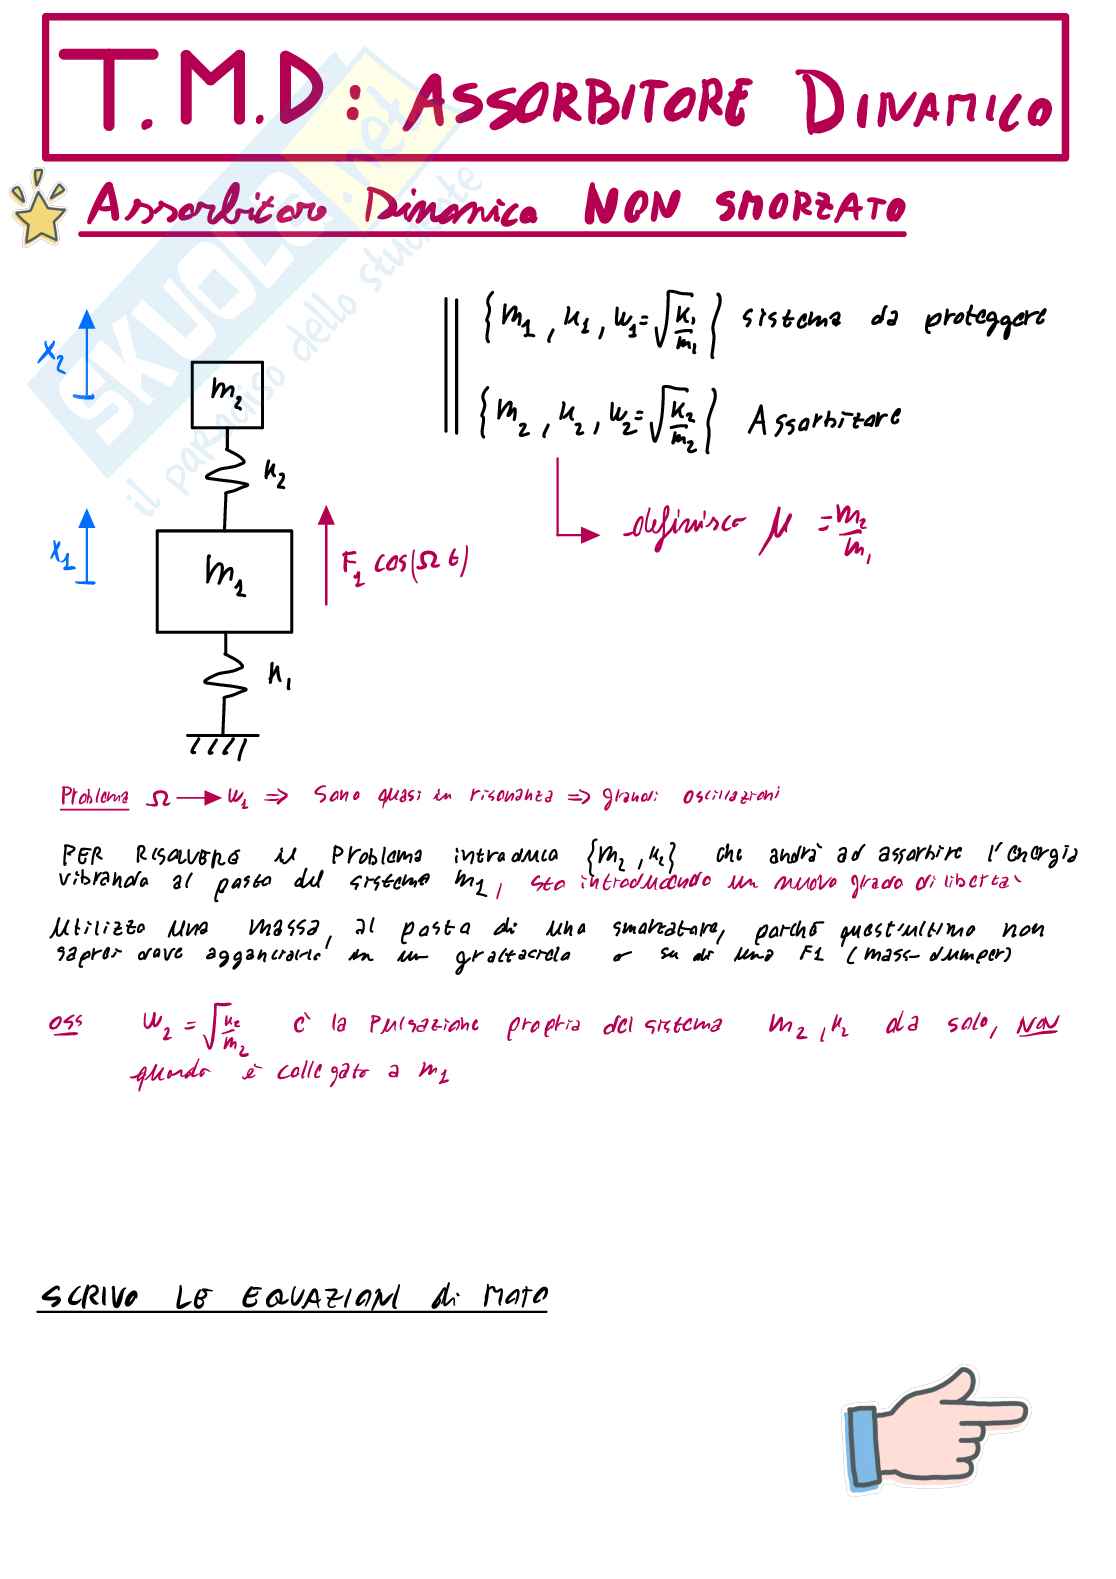 T.M.D: ASSORBITORE DINAMICO
Assorbitore Dinamico NON SMORZATO
{m₁, k₁, ω₁=√(k₁/m₁)} sistema da proteggere
{m₂, k₂, ω₂=√(k₂/m₂)} Assorbitore
definisco μ = m₂/m₁
x₂
m₂
k₂
x₁
m₁
F₁ cos(Ω t)
k₁
Problema Ω → ω₁ ⇒ Sono quasi in risonanza ⇒ grandi oscillazioni
PER RISOLVERE il Problema introduco {m₂, k₂} che andrà ad assorbire l'energia
vibrando al posto del sistema m₁, sto introducendo un nuovo grado di libertà
Utilizzo una massa, al posto di uno smorzatore, perché quest'ultimo non
saprei dove agganciarlo in un grattacielo o su di una F1 (mass-dumper)
oss ω₂ = √(k₂/m₂) è la Pulsazione propria del sistema m₂, k₂ da solo, NON
quando è collegato a m₁
SCRIVO LE EQUAZIONI di MOTO
SKUOLA.net
il paradiso dello studente